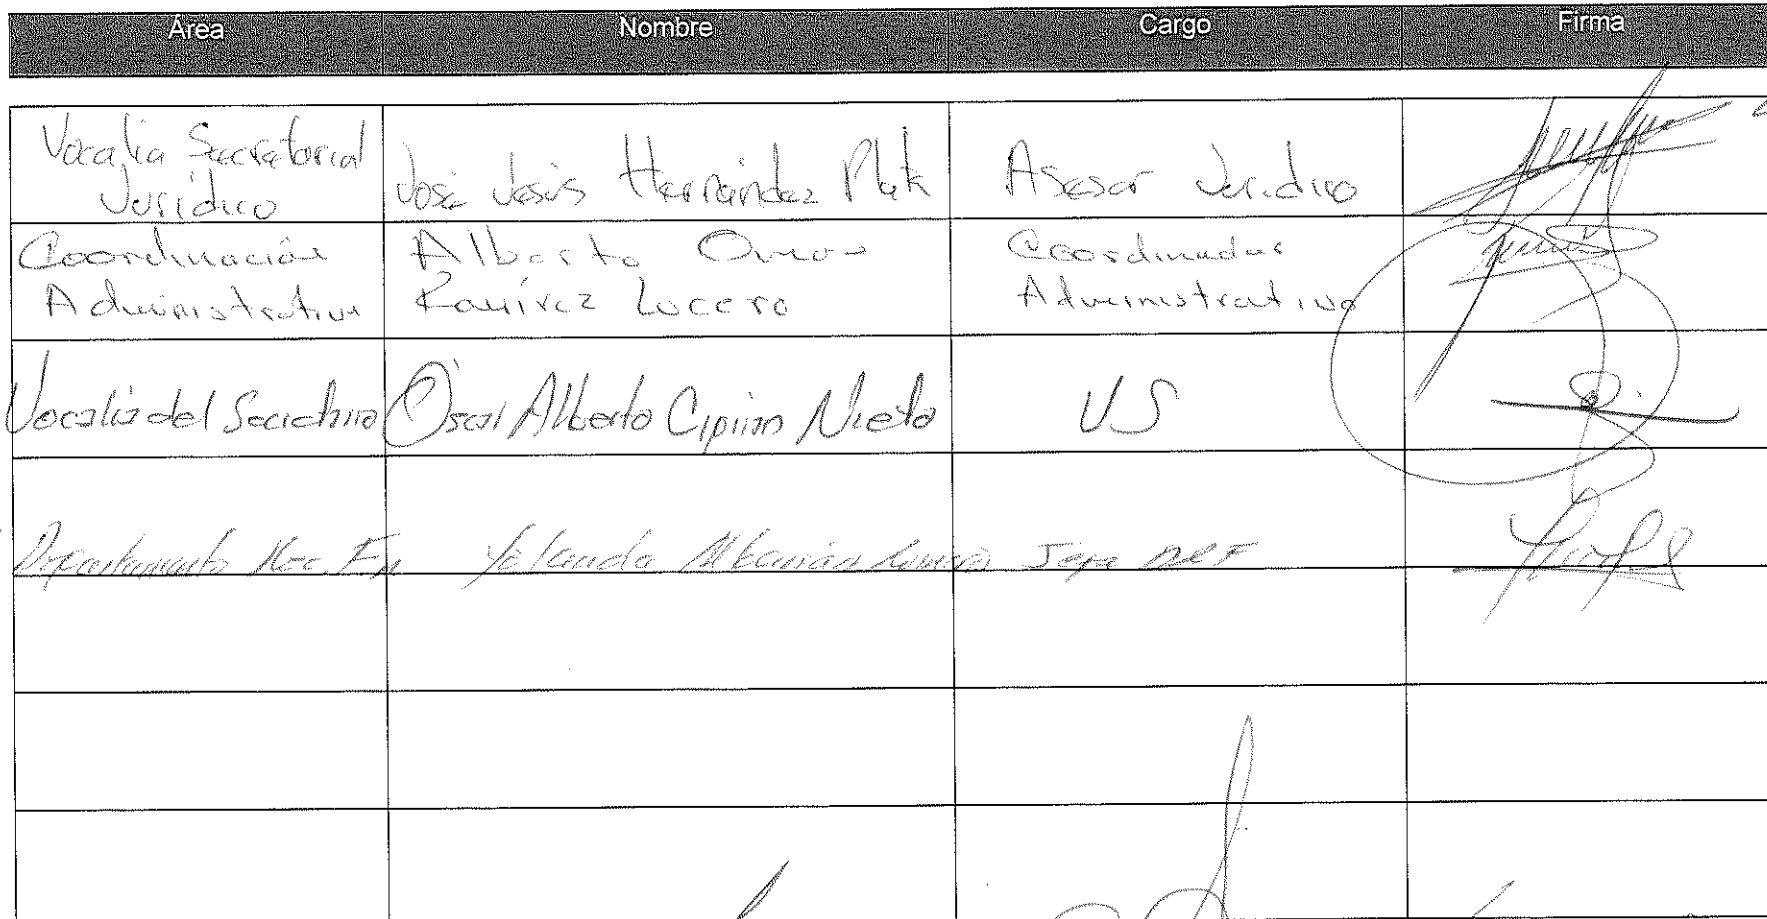 Área Nombre Cargo Firma
Vocalía Secretarial
Jurídico
José Jesús Hernández
Asesor Jurídico
Coordinación
Administrativa
Alberto Omar
Ramírez Lucero
Coordinador
Administrativo
Vocalía del
Óscar Alberto Ciprian Nieto
VS
Departamento Rec. Fin